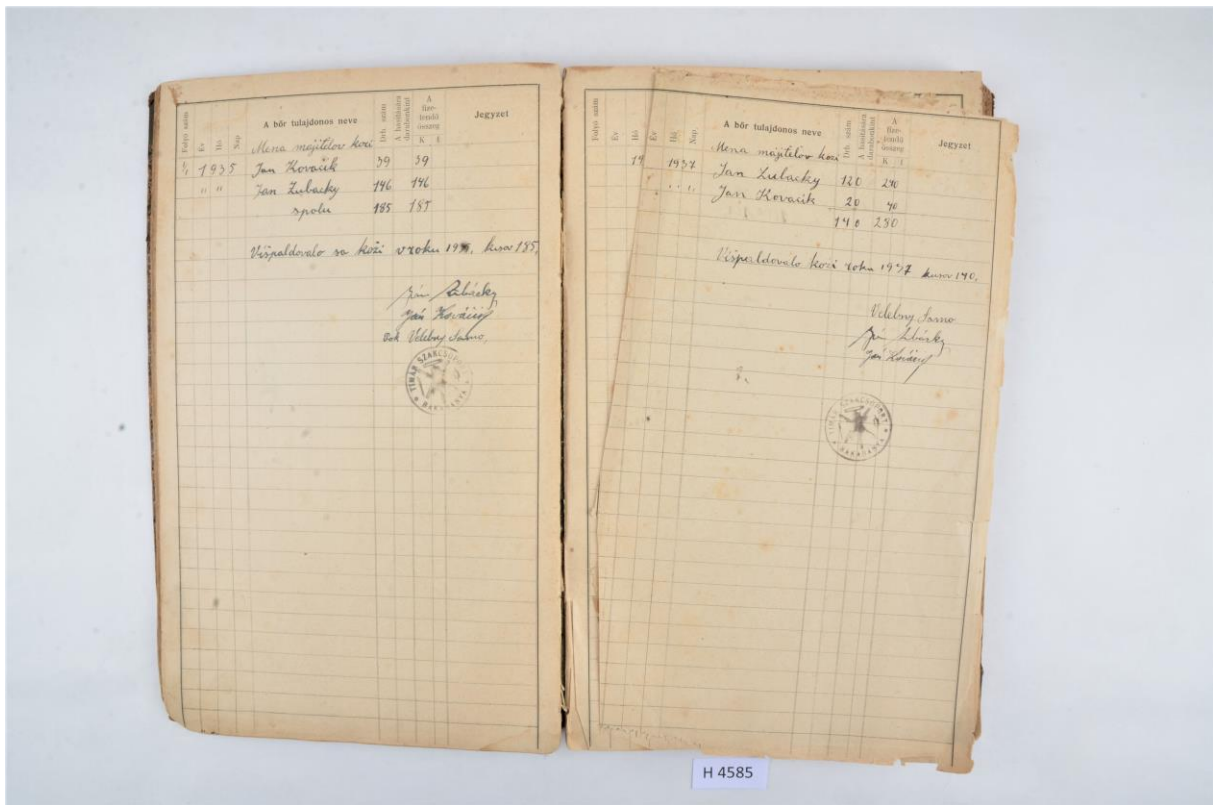 Folyó szám Év Hó Nap A bőr tulajdonos neve Drb. szám A hasításra darabonkint A fize-tendő összeg K f Jegyzet
Mena májitelov koží
1935 Jan Kovačik 39 39
" " Jan Zubacky 146 146
spolu 185 185
Višpaldovalo sa koži v roku 193 kusov 185.
Ján Zubácky
Ján Kováčik
Velebny Samo.
TIMÁR SZAKCSOPORT
BAKABÁNYA
Folyó szám Év Hó
Év Hó Nap A bőr tulajdonos neve Drb. szám A hasításra darabonkint A fize-tendő összeg K f Jegyzet
Mena májitelov koží
19 1937 Jan Zubacky 120 240
" " Jan Kovačik 20 40
140 280
Višpaldovalo koži roku 1937 kusov 140.
Velebny Samo
Ján Zubácky
Ján Kováčik
TIMÁR SZAKCSOPORT
BAKABÁNYA
H 4585